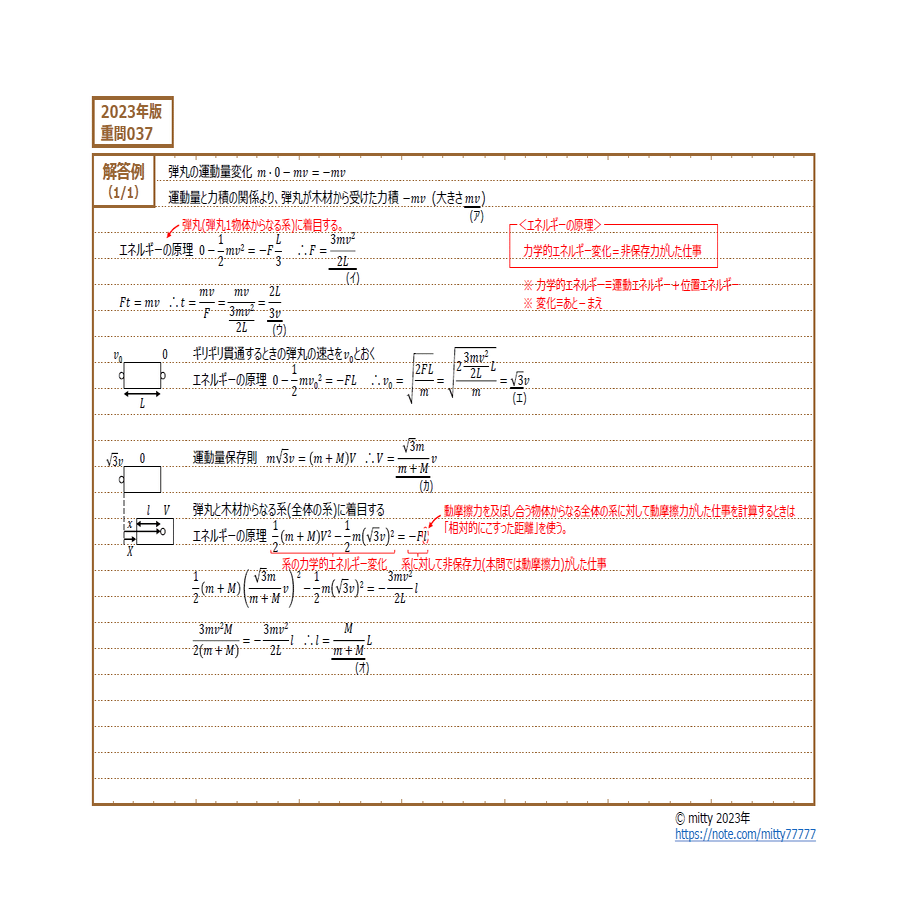 2023年版
重問037
解答例
(1/1)
弾丸の運動量変化 m・0－mv＝－mv
運動量と力積の関係より、弾丸が木材から受けた力積 －mv (大きさ mv)
(ア)
弾丸(弾丸1物体からなる系)に着目する。
エネルギーの原理 0－1/2 mv²＝－F L/3 ∴F＝3mv²/2L
(イ)
＜エネルギーの原理＞
力学的エネルギー変化＝非保存力がした仕事
※ 力学的エネルギー＝運動エネルギー＋位置エネルギー
※ 変化＝あと－まえ
Ft＝mv ∴t＝mv/F＝mv/(3mv²/2L)＝2L/3v
(ウ)
v₀ 0
L
ギリギリ貫通するときの弾丸の速さをv₀とおく
エネルギーの原理 0－1/2 mv₀²＝－FL ∴v₀＝√(2FL/m)＝√(2(3mv²/2L)L/m)＝√3v
(エ)
√3v 0
運動量保存則 m√3v＝(m＋M)V ∴V＝√3m/(m＋M) v
(カ)
l V
x
X
弾丸と木材からなる系(全体の系)に着目する
エネルギーの原理 1/2 (m＋M)V²－1/2 m(√3v)²＝－Fl
動摩擦力を及ぼし合う物体からなる全体の系に対して動摩擦力がした仕事を計算するときは
「相対的にこすった距離」を使う。
系の力学的エネルギー変化 系に対して非保存力(本問では動摩擦力)がした仕事
1/2 (m＋M)(√3m/(m＋M) v)²－1/2 m(√3v)²＝－3mv²/2L l
3mv²M/2(m＋M)＝－3mv²/2L l ∴l＝M/(m＋M) L
(オ)
© mitty 2023年
https://note.com/mitty77777